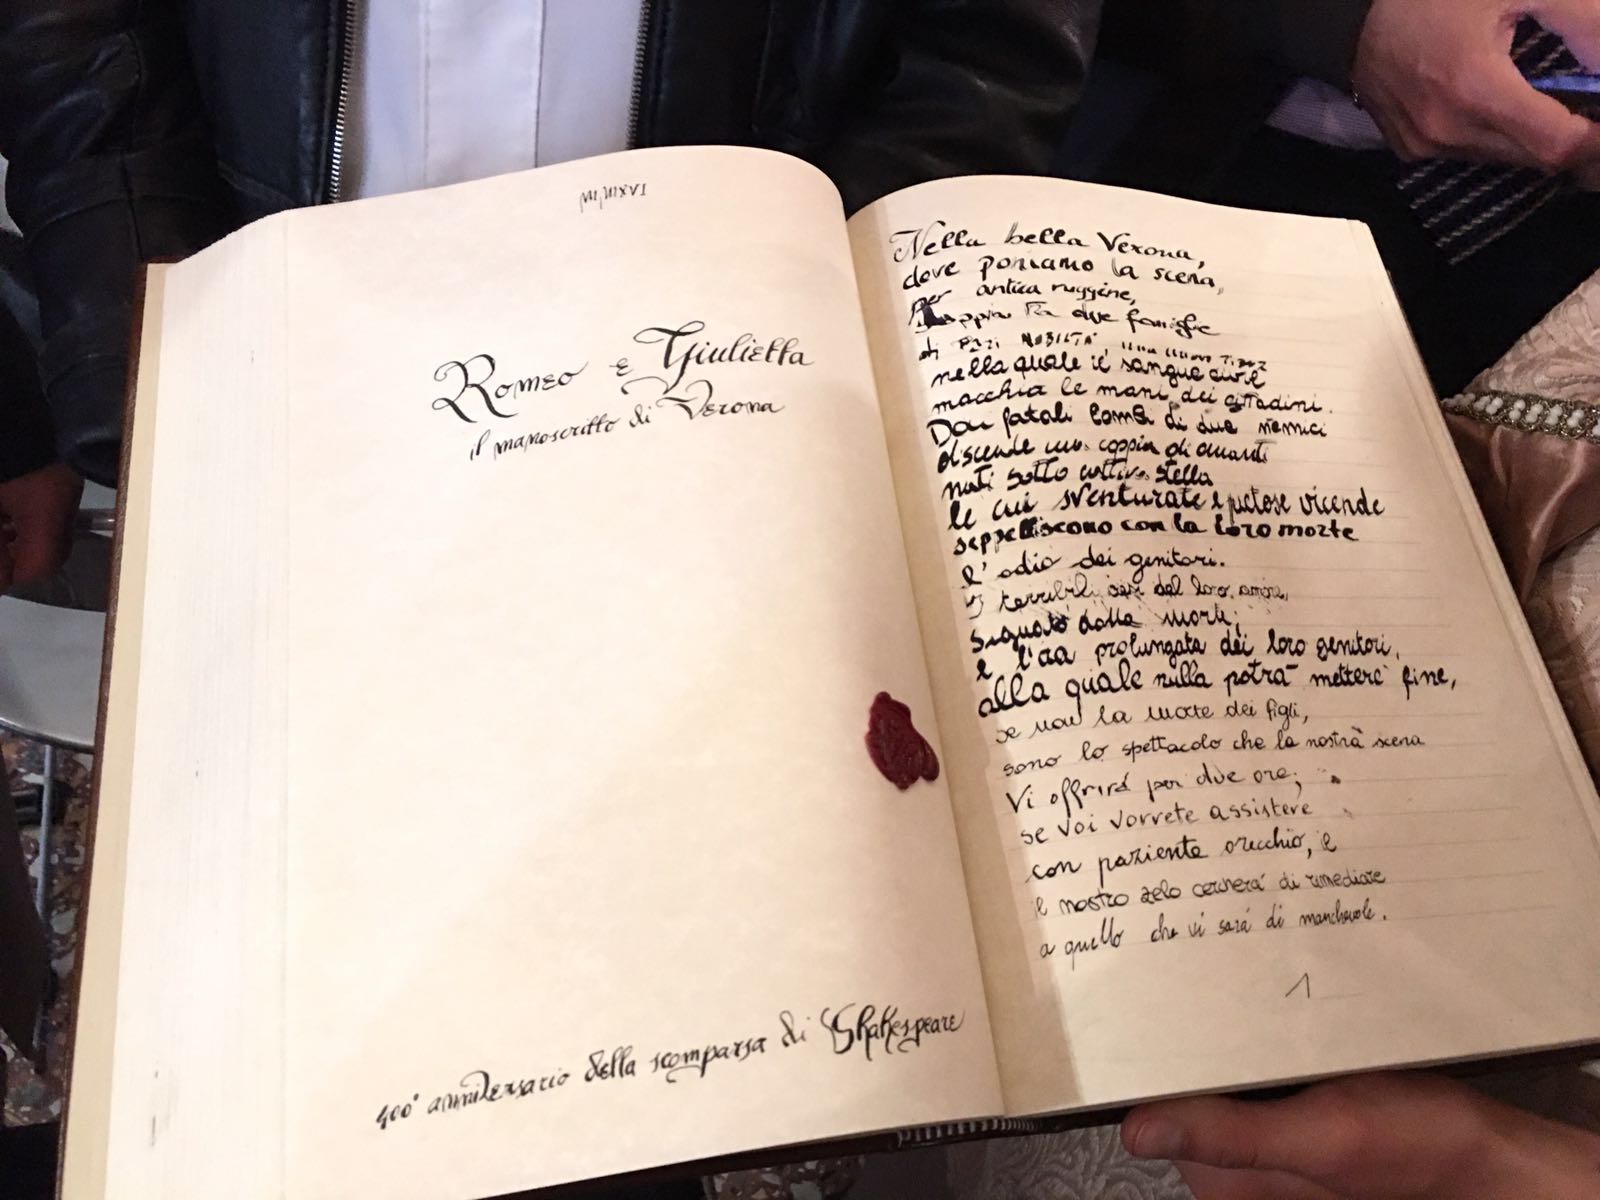 Romeo e Giulietta
il manoscritto di Verona
400° anniversario della scomparsa di Shakespeare
Nella bella Verona,
dove poniamo la scena,
Per antica ruggine,
scoppia tra due famiglie
di PARI NOBILTÀ,
nella quale il sangue civile
macchia le mani dei cittadini.
Dai fatali lombi di due nemici
discende una coppia di amanti
nati sotto cattiva stella
le cui sventurate e pietose vicende
seppelliscono con la loro morte
l'odio dei genitori.
I terribili casi del loro amore,
segnato dalla morte,
e l'ira prolungata dei loro genitori,
alla quale nulla potrà mettere fine,
se non la morte dei figli,
sono lo spettacolo che la nostra scena
Vi offrirà per due ore;
se voi vorrete assistere
con paziente orecchio, e
il nostro zelo cercherà di rimediare
a quello che vi sarà di manchevole.
1